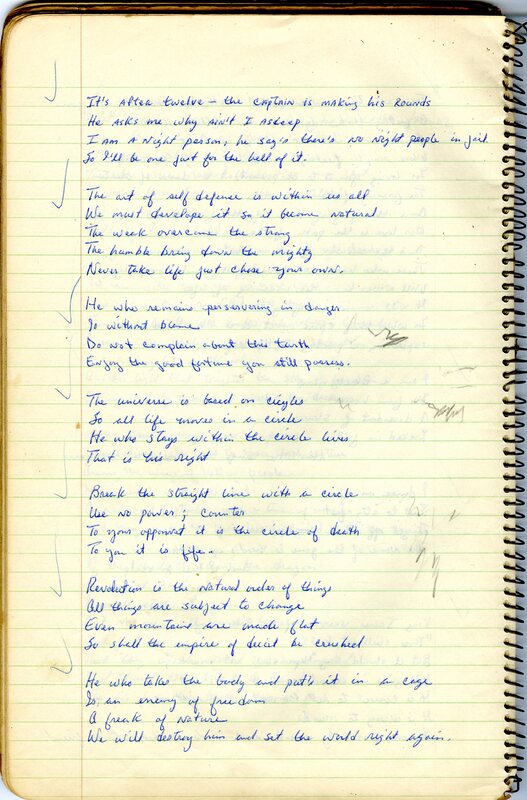 It's After twelve – the captain is making his Rounds
He asks me why Ain't I Asleep
I am a Night person, he say's there's no Night people in jail
So I'll be one just for the hell of it.
The art of self defense is within us all
We must develope it so it become natural
The weak overcome the strong
The humble bring down the mighty
Never take life just chose your own.
He who remains perservering in danger
Is without blame
Do not complain about this truth
Enjoy the good fortune you still possess.
The universe is based on circles
So all life moves in a circle
He who stays within the circle lives
That is his right
Break the straight line with a circle
Use no power; counter
To your opponent it is the circle of death
To you it is life.
Revolution is the natural order of things
All things are subject to change
Even mountains are made flat
So shall the empire of deceit be crushed
He who takes the body and putts it in a cage
Is an enemy of freedom
A freak of nature
We will destroy him and set the world right again.